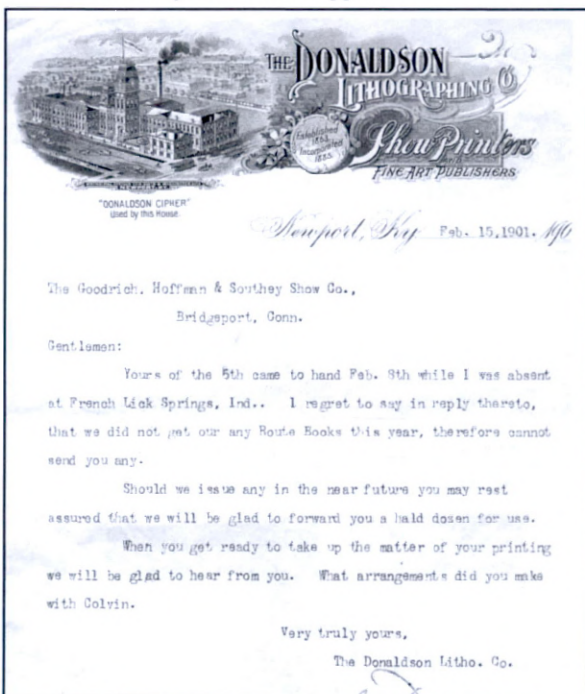 THE DONALDSON
LITHOGRAPHING CO.
Established
Incorporated
Show Printers
FINE ART PUBLISHERS
"DONALDSON CIPHER"
Used by this House.
Newport, Ky. Feb. 15, 1901.
The Goodrich, Hoffman & Southey Show Co.,
Bridgeport, Conn.
Gentlemen:
Yours of the 5th came to hand Feb. 8th while I was absent
at French Lick Springs, Ind.. I regret to say in reply thereto,
that we did not get our any Route Books this year, therefore cannot
send you any.
Should we issue any in the near future you may rest
assured that we will be glad to forward you a hald dozen for use.
When you get ready to take up the matter of your printing
we will be glad to hear from you. What arrangements did you make
with Colvin.
Very truly yours,
The Donaldson Litho. Co.